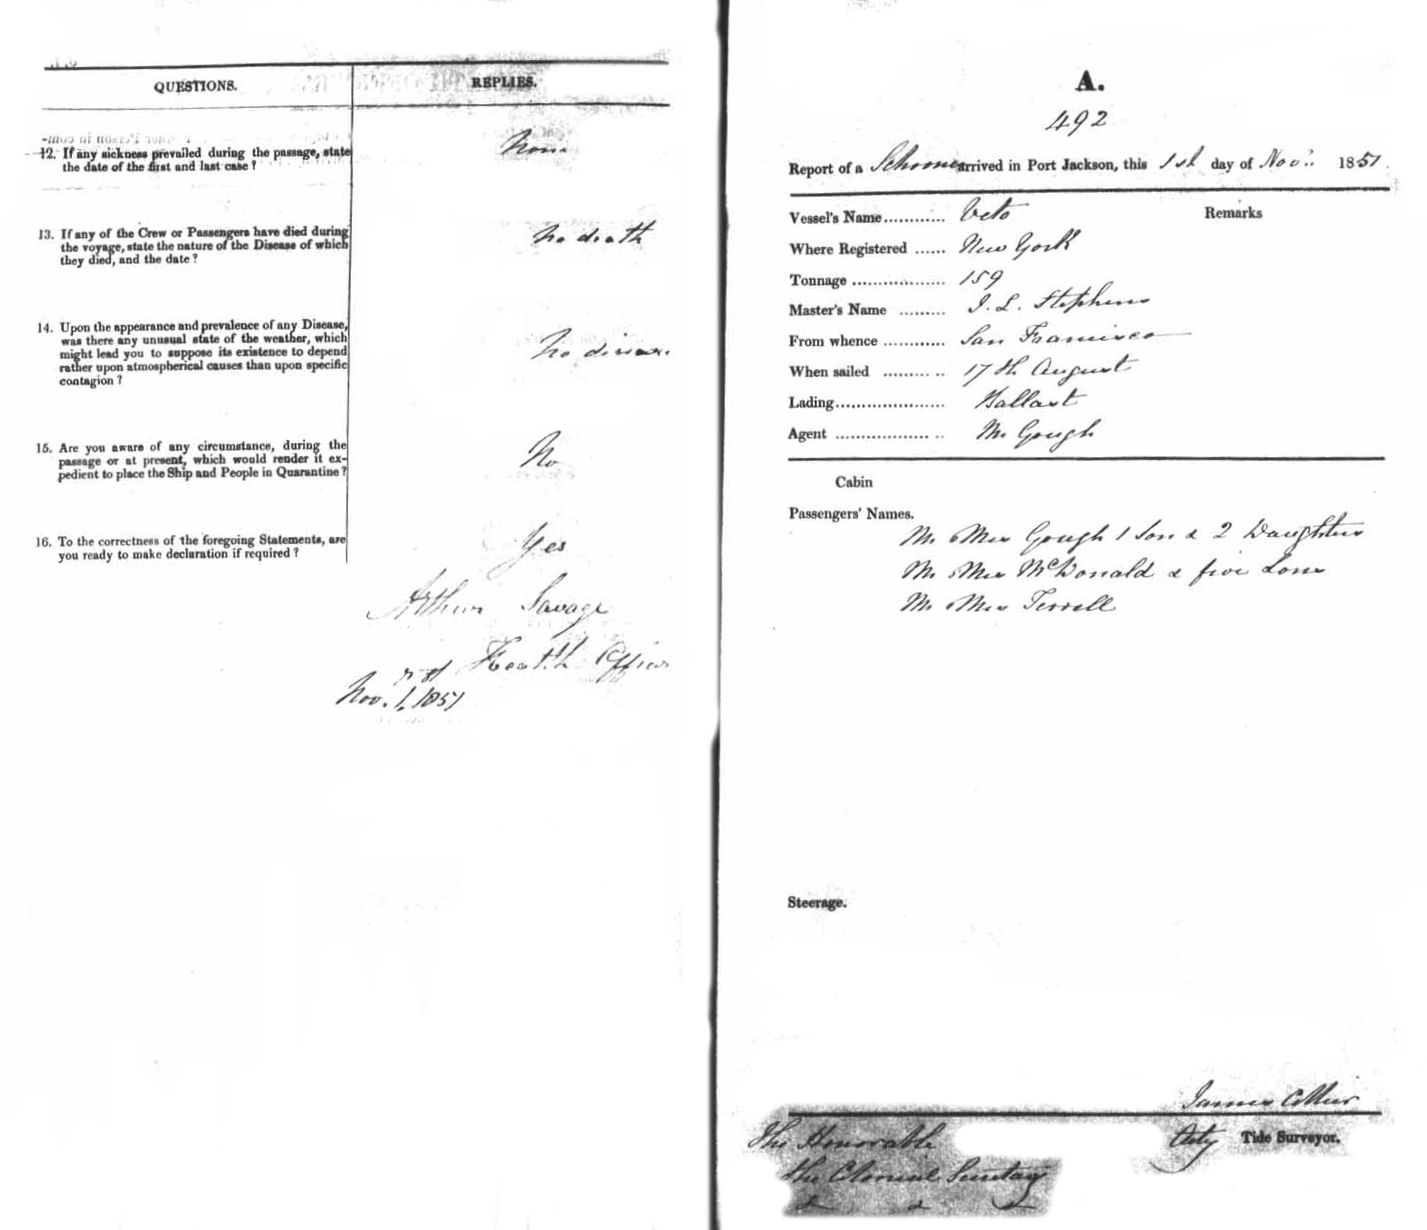 QUESTIONS.
REPLIES.
12. If any sickness prevailed during the passage, state
the date of the first and last case?
None
13. If any of the Crew or Passengers have died during
the voyage, state the nature of the Disease of which
they died, and the date?
No death
14. Upon the appearance and prevalence of any Disease,
was there any unusual state of the weather, which
might lead you to suppose its existence to depend
rather upon atmospherical causes than upon specific
contagion?
No disease.
15. Are you aware of any circumstance, during the
passage or at present, which would render it ex-
pedient to place the Ship and People in Quarantine?
No
16. To the correctness of the foregoing Statements, are
you ready to make declaration if required?
Yes
Arthur Savage
Health Officer
Nov. 1, 1851
A.
492
Report of a Schooner arrived in Port Jackson, this 1st day of Nov. 1851.
Vessel's Name............ Veto
Remarks
Where Registered ...... New York
Tonnage .................. 159
Master's Name ......... I. L. Stephens
From whence ............ San Francisco
When sailed ......... .. 17th August
Lading..................... Ballast
Agent .................. .. Mr Gough
Cabin
Passengers' Names.
Mr Mrs Gough 1 Son & 2 Daughters
Mr Mrs McDonald & five Sons
Mr Mrs Terrell
Steerage.
James
Acty Tide Surveyor.
The Honorable
The Colonial Secretary
& & &